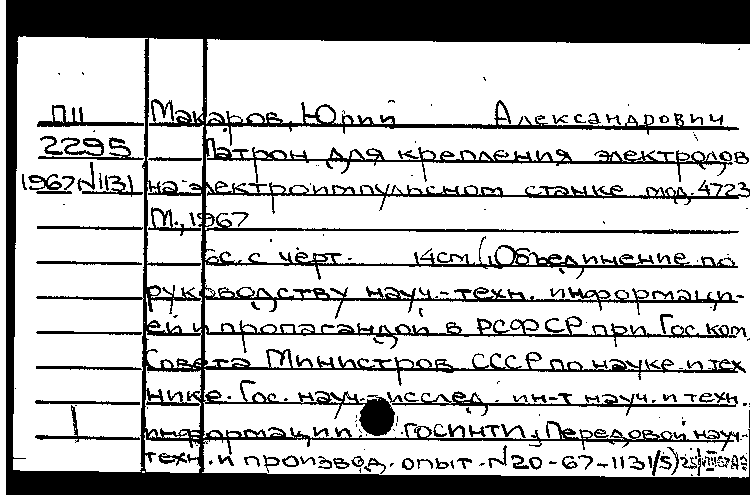 П11 Макаров, Юрий Александрович
2295 Патрон для крепления электродов
1967 N1131 на электроимпульсном станке мод. 4723
М., 1967
6с. с черт. 14см (Объединение по
руководству науч.-техн. информаци-
ей и пропагандой в РСФСР при Гос. ком.
Совета Министров СССР по науке и тех
нике. Гос. науч.-исслед. ин-т науч. и техн.
1 информации ГОСИНТИ, Передовой науч.-
техн. и производ. опыт. N20-67-1131/5)